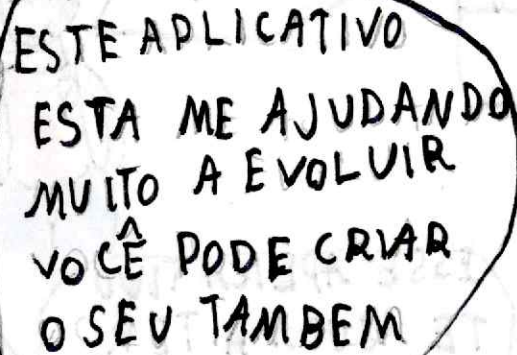 ESTE APLICATIVO
ESTA ME AJUDANDO
MUITO A EVOLUIR
VOCÊ PODE CRIAR
O SEU TAMBEM